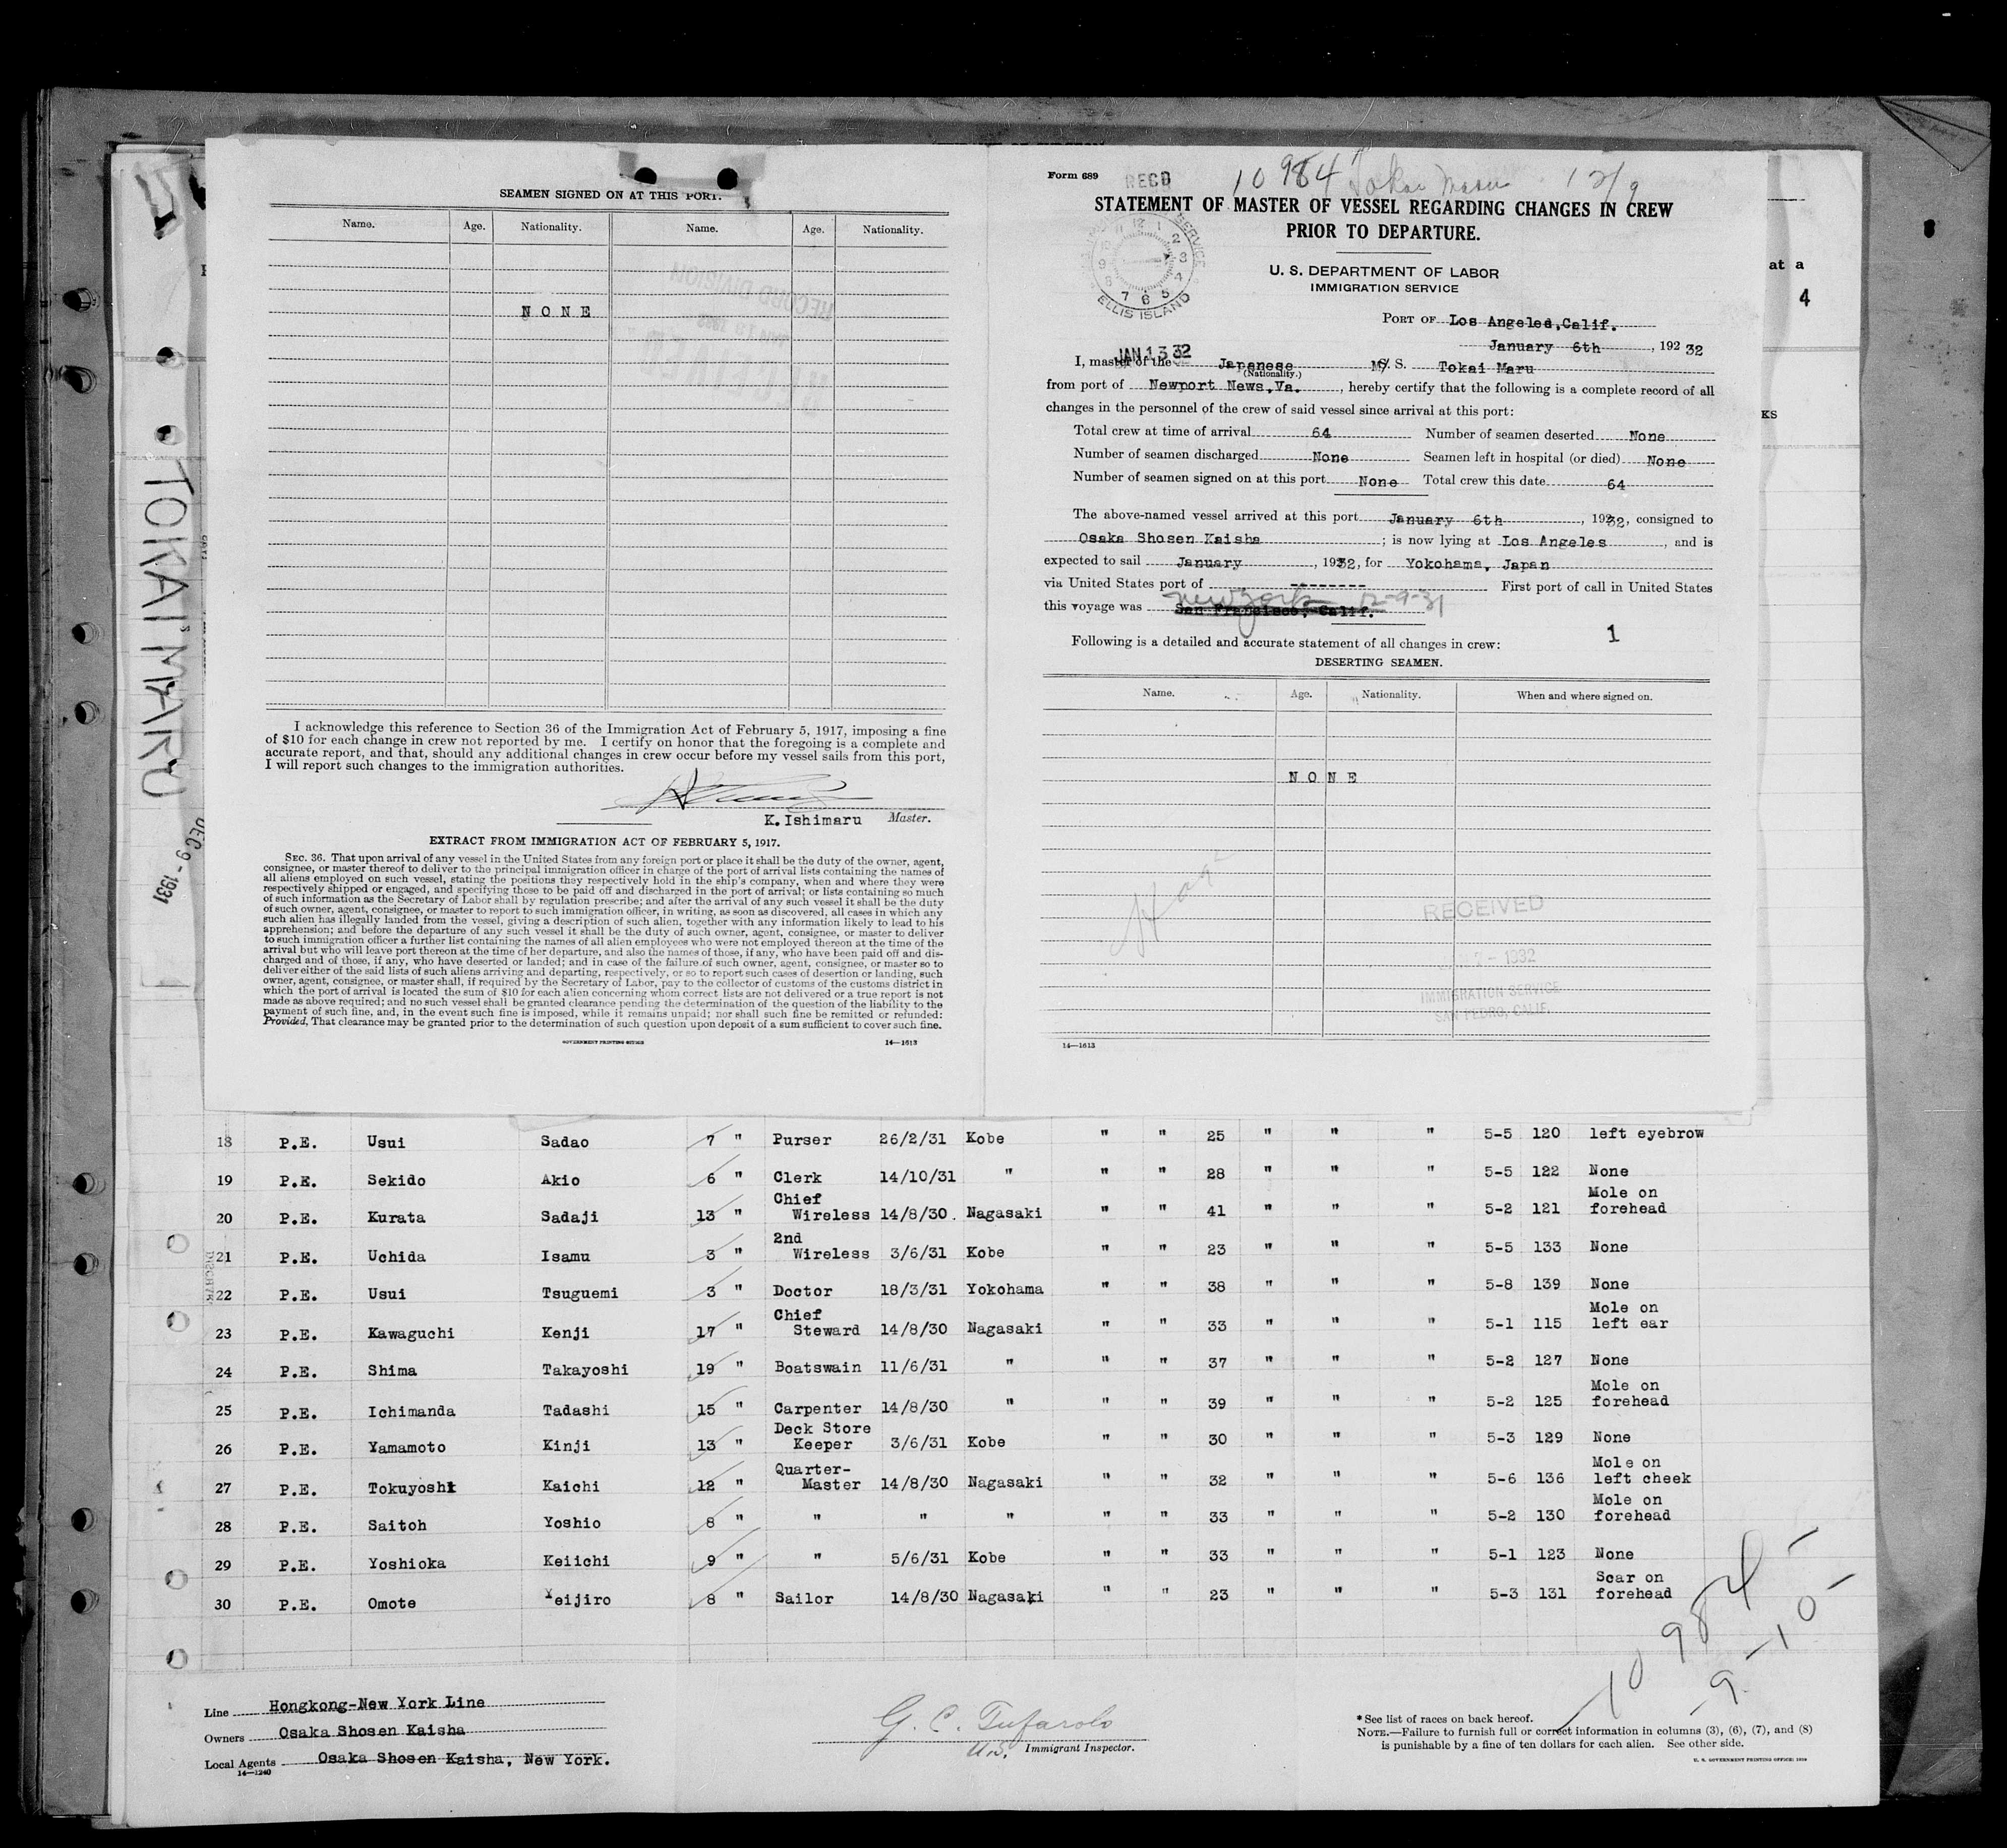 TOKAI MARU
DEC 9 - 1931
SEAMEN SIGNED ON AT THIS PORT.
Name. Age. Nationality. Name. Age. Nationality.
NONE
I acknowledge this reference to Section 36 of the Immigration Act of February 5, 1917, imposing a fine
of $10 for each change in crew not reported by me. I certify on honor that the foregoing is a complete and
accurate report, and that, should any additional changes in crew occur before my vessel sails from this port,
I will report such changes to the immigration authorities.
K. Ishimaru Master.
EXTRACT FROM IMMIGRATION ACT OF FEBRUARY 5, 1917.
SEC. 36. That upon arrival of any vessel in the United States from any foreign port or place it shall be the duty of the owner, agent,
consignee, or master thereof to deliver to the principal immigration officer in charge of the port of arrival lists containing the names of
all aliens employed on such vessel, stating the positions they respectively hold in the ship's company, when and where they were
respectively shipped or engaged, and specifying those to be paid off and discharged in the port of arrival; or lists containing so much
of such information as the Secretary of Labor shall by regulation prescribe; and after the arrival of any such vessel it shall be the duty
of such owner, agent, consignee, or master to report to such immigration officer, in writing, as soon as discovered, all cases in which any
such alien has illegally landed from the vessel, giving a description of such alien, together with any information likely to lead to his
apprehension; and before the departure of any such vessel it shall be the duty of such owner, agent, consignee, or master to deliver
to such immigration officer a further list containing the names of all alien employees who were not employed thereon at the time of the
arrival but who will leave port thereon at the time of her departure, and also the names of those, if any, who have been paid off and dis-
charged and of those, if any, who have deserted or landed; and in case of the failure of such owner, agent, consignee, or master so to
deliver either of the said lists of such aliens arriving and departing, respectively, or so to report such cases of desertion or landing, such
owner, agent, consignee, or master shall, if required by the Secretary of Labor, pay to the collector of customs of the customs district in
which the port of arrival is located the sum of $10 for each alien concerning whom correct lists are not delivered or a true report is not
made as above required; and no such vessel shall be granted clearance pending the determination of the question of the liability to the
payment of such fine, and, in the event such fine is imposed, while it remains unpaid; nor shall such fine be remitted or refunded:
Provided, That clearance may be granted prior to the determination of such question upon deposit of a sum sufficient to cover such fine.
GOVERNMENT PRINTING OFFICE 14—1613
Form 689 RECD 10984 Tokai Maru 12/9
STATEMENT OF MASTER OF VESSEL REGARDING CHANGES IN CREW
PRIOR TO DEPARTURE.
U. S. DEPARTMENT OF LABOR
IMMIGRATION SERVICE
ELLIS ISLAND
JAN 13 32
PORT OF Los Angeles, Calif.
January 6th, 192 32
I, master of the Japenese M/S. S. Tokai Maru
(Nationality.)
from port of Newport News, Va., hereby certify that the following is a complete record of all
changes in the personnel of the crew of said vessel since arrival at this port:
Total crew at time of arrival 64 Number of seamen deserted None
Number of seamen discharged None Seamen left in hospital (or died) None
Number of seamen signed on at this port None Total crew this date 64
The above-named vessel arrived at this port January 6th, 1932, consigned to
Osaka Shosen Kaisha; is now lying at Los Angeles, and is
expected to sail January, 1932, for Yokohama, Japan
via United States port of -------- First port of call in United States
this voyage was San Francisco, Calif. New York 12-9-31
1
Following is a detailed and accurate statement of all changes in crew:
DESERTING SEAMEN.
Name. Age. Nationality. When and where signed on.
NONE
RECEIVED
7 - 1932
IMMIGRATION SERVICE
SAN PEDRO, CALIF.
14—1613
at a
4
KS
18 P.E. Usui Sadao 7 " Purser 26/2/31 Kobe " " 25 " " " 5-5 120 left eyebrow
19 P.E. Sekido Akio 6 " Clerk 14/10/31 " " " 28 " " " 5-5 122 None
20 P.E. Kurata Sadaji 13 " Chief Wireless 14/8/30 Nagasaki " " 41 " " " 5-2 121 Mole on forehead
21 P.E. Uchida Isamu 3 " 2nd Wireless 3/6/31 Kobe " " 23 " " " 5-5 133 None
22 P.E. Usui Tsuguemi 3 " Doctor 18/3/31 Yokohama " " 38 " " " 5-8 139 None
23 P.E. Kawaguchi Kenji 17 " Chief Steward 14/8/30 Nagasaki " " 33 " " " 5-1 115 Mole on left ear
24 P.E. Shima Takayoshi 19 " Boatswain 11/6/31 " " " 37 " " " 5-2 127 None
25 P.E. Ichimanda Tadashi 15 " Carpenter 14/8/30 " " " 39 " " " 5-2 125 Mole on forehead
26 P.E. Yamamoto Kinji 13 " Deck Store Keeper 3/6/31 Kobe " " 30 " " " 5-3 129 None
27 P.E. Tokuyoshi Kaichi 12 " Quarter-Master 14/8/30 Nagasaki " " 32 " " " 5-6 136 Mole on left cheek
28 P.E. Saitoh Yoshio 8 " " " " " " 33 " " " 5-2 130 Mole on forehead
29 P.E. Yoshioka Keiichi 9 " " 5/6/31 Kobe " " 33 " " " 5-1 123 None
30 P.E. Omote Yeijiro 8 " Sailor 14/8/30 Nagasaki " " 23 " " " 5-3 131 Scar on forehead
10984
9-10-
Line Hongkong-New York Line
Owners Osaka Shosen Kaisha
Local Agents Osaka Shosen Kaisha, New York.
14—1240
G. C. Tufarolo
U.S. Immigrant Inspector.
* See list of races on back hereof.
NOTE.—Failure to furnish full or correct information in columns (3), (6), (7), and (8)
is punishable by a fine of ten dollars for each alien. See other side.
U. S. GOVERNMENT PRINTING OFFICE: 1929